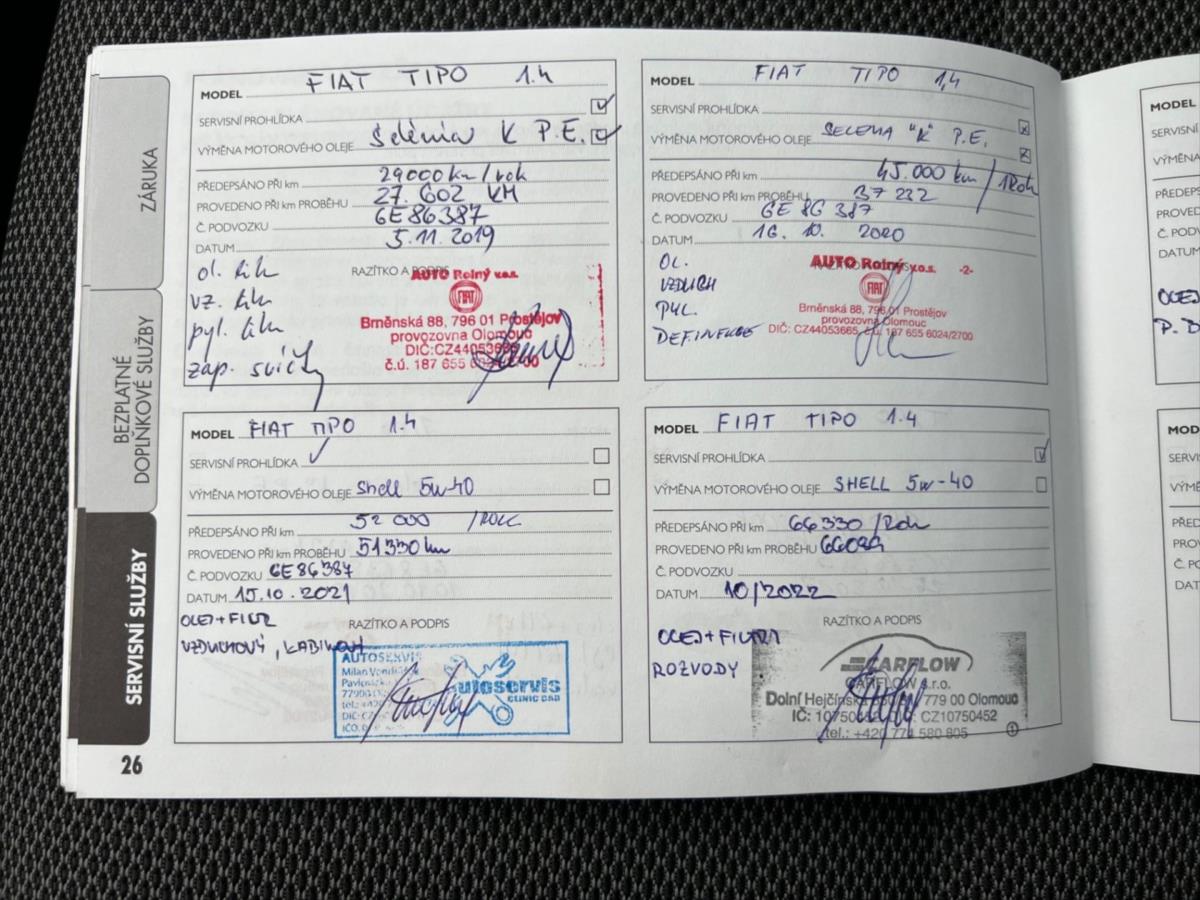 ZÁRUKA
BEZPLATNÉ
DOPLŇKOVÉ SLUŽBY
SERVISNÍ SLUŽBY
MODEL FIAT TIPO 1.4
SERVISNÍ PROHLÍDKA
VÝMĚNA MOTOROVÉHO OLEJE Selénia K P.E.
PŘEDEPSÁNO PŘI km 29000 km/rok
PROVEDENO PŘI km PROBĚHU 27.602 KM
Č. PODVOZKU 6E86387
DATUM 5.11.2019
RAZÍTKO A PODPIS
ol. filtr
vz. filtr
pyl. filtr
zap. svíčky
AUTO Rolný v.o.s.
FIAT
Brněnská 88, 796 01 Prostějov
provozovna Olomouc
DIČ:CZ44053665
č.ú. 187 655
MODEL FIAT TIPO 1,4
SERVISNÍ PROHLÍDKA
VÝMĚNA MOTOROVÉHO OLEJE SELENIA "K" P.E.
PŘEDEPSÁNO PŘI km 45.000 km/1Rok
PROVEDENO PŘI km PROBĚHU 37 232
Č. PODVOZKU 6E 86 387
DATUM 16. 10. 2020
OL.
VZDUCH
PYL.
AUTO Rolný v.o.s. -2-
FIAT
Brněnská 88, 796 01 Prostějov
provozovna Olomouc
DIČ: CZ44053665, č.ú. 187 655 6024/2700
MODEL FIAT TIPO 1.4
SERVISNÍ PROHLÍDKA
VÝMĚNA MOTOROVÉHO OLEJE Shell 5w40
PŘEDEPSÁNO PŘI km 52 000 /ROK
PROVEDENO PŘI km PROBĚHU 51330 km
Č. PODVOZKU 6E86387
DATUM 15.10.2021
OLEJ+FILTR
VZDUCHOVÝ, KABINOVÝ
RAZÍTKO A PODPIS
AUTOSERVIS
Milan
autoservis
CLINIC CAR
MODEL FIAT TIPO 1.4
SERVISNÍ PROHLÍDKA
VÝMĚNA MOTOROVÉHO OLEJE SHELL 5w-40
PŘEDEPSÁNO PŘI km 66330/Rok
PROVEDENO PŘI km PROBĚHU 66089
Č. PODVOZKU
DATUM 10/2022
RAZÍTKO A PODPIS
OLEJ+FILTR
ROZVODY
CARFLOW
CARFLOW s.r.o.
Dolní Hejčínská 779 00 Olomouc
IČ: 10750452 CZ10750452
tel.: +420 774 580 805
26
MODEL
SERVISNÍ
VÝMĚNA
PŘEDEPS
PROVEDE
Č. PODVO
DATUM
OLEJ
MOD
SERVIS
VÝMĚ
PŘED
PROV
Č. PO
DAT